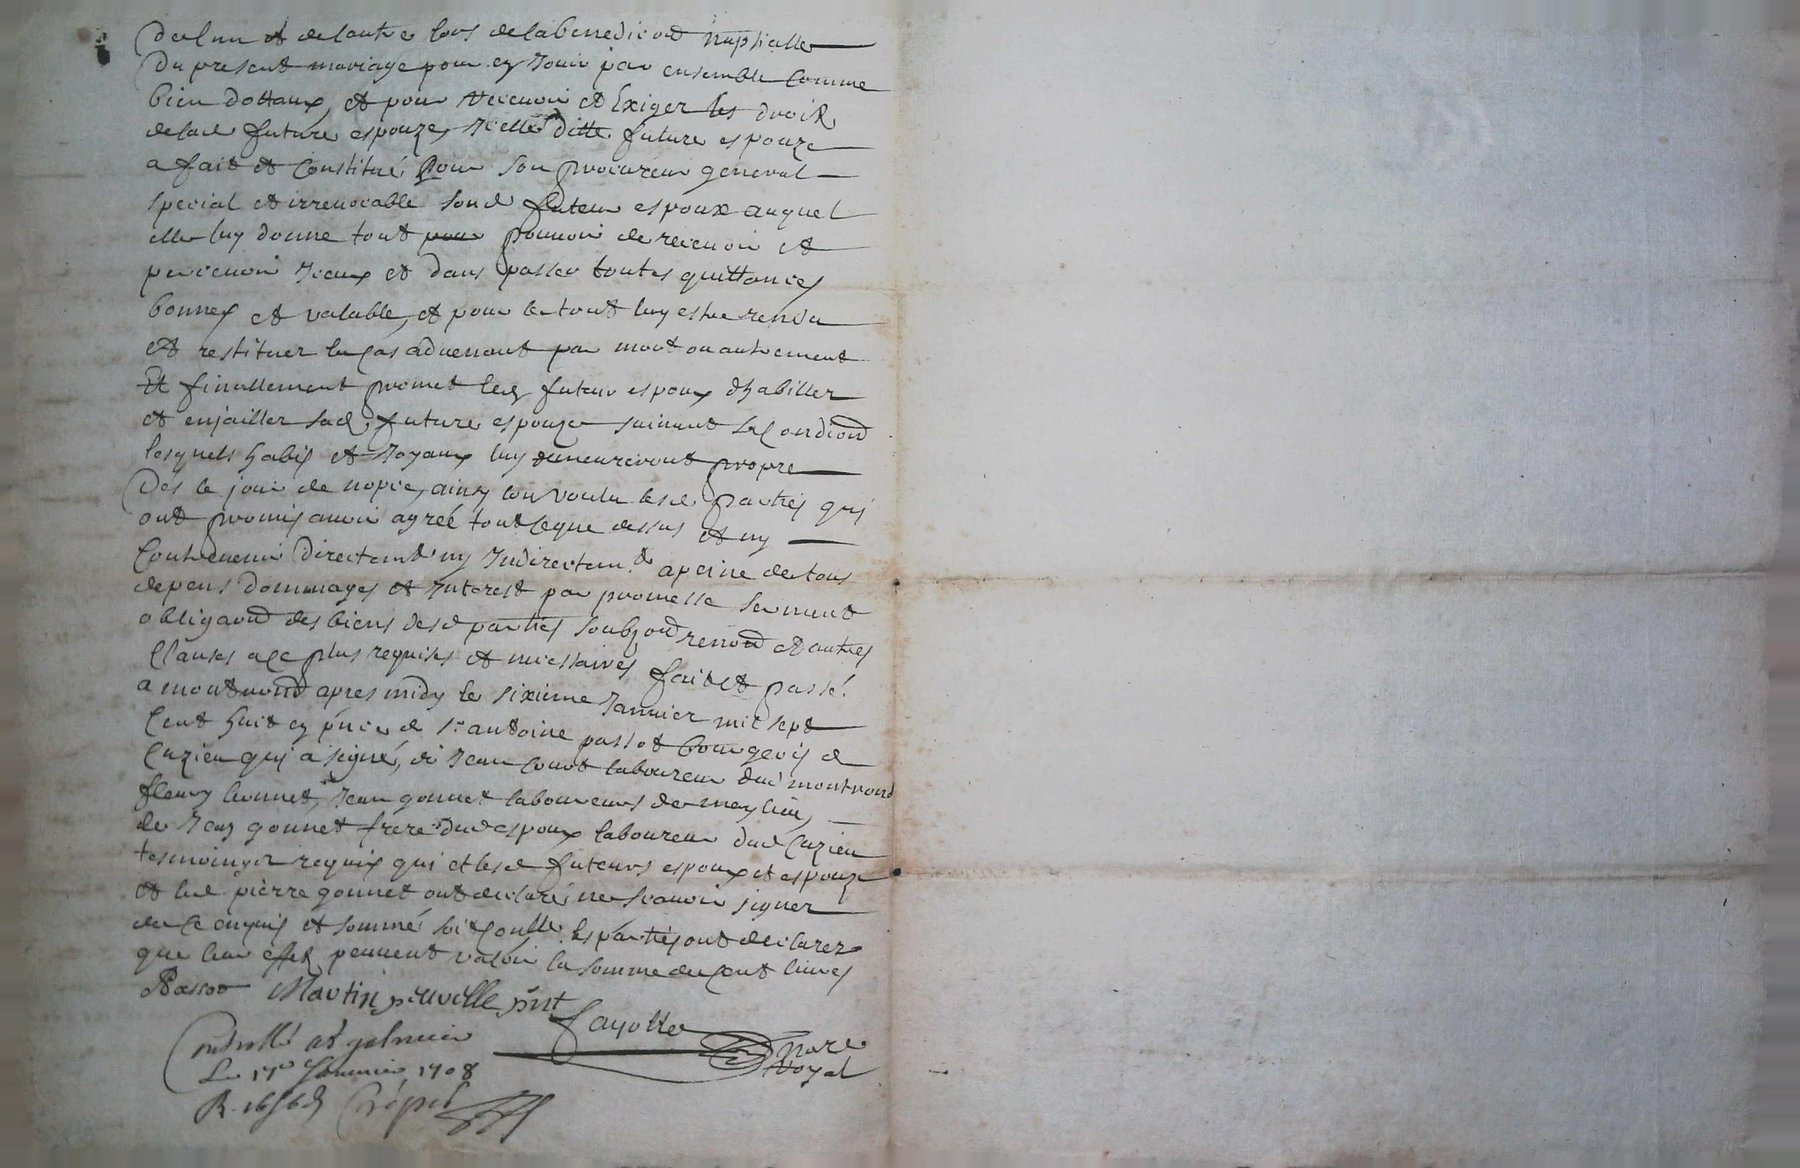 de lun et de lautre lors de la benedicôn nuptialle
Du present mariage pour en Jouir par ensemble Comme
bien dottaux, et pour recevoir et Exiger les droit
de lad future espouze, Icelle ditte future espouze
a fait et Constitué pour son procureur general
special et irrevocable sond futeur espoux auquel
elle luy donne tout pouvoir de recevoir et
percevoir Iceux et dans passer toutes quittances
bonnes et valable, et pour le tout luy estre rendu
et restituer le Cas advenant par mort ou autrement
Et finallement promet led futeur espoux dhabiller
et enjailler sad. future espouze suivant sa Condiôn
lesquels habis et Joyaux luy demeureront propre
Dés le jour de nopce, ainsy lon voulu lesd parties qui
ont promis avoir agréé tout ceque dessus et ny
Contrevenir directemt ny Indirectem.t a peine de tous
depens dommages et Interest par promesse serment
obligaôn des biens desd parties soubzôn renôn et autres
Clauses a ce plus requises et necessaires fait et passé
a montrond apres midy le sixieme Janvier mil sept
Cent huit en pnce de Sr antoine passot bourgeois de
Cuzieu qui a signé, de Jean Court laboureur dud montrond
fleury bonnet, Jean gonnet laboureurs de meylieu,
de Jean gonnet frere dud espoux laboureur dud Cuzieu
tesmoings requis qui et lesd futeurs espoux et espouze
et led pierre gonnet ont declaré ne scavoir signer
de ce enquis et sommé soit Conttr. les parties ont declarez
que leur effet peuvent valoir la somme de Cent livres
Passot Martin pnt
Fayolle
Nore
Royal
Controllé a st galmier
Le 17e Janvier 1708